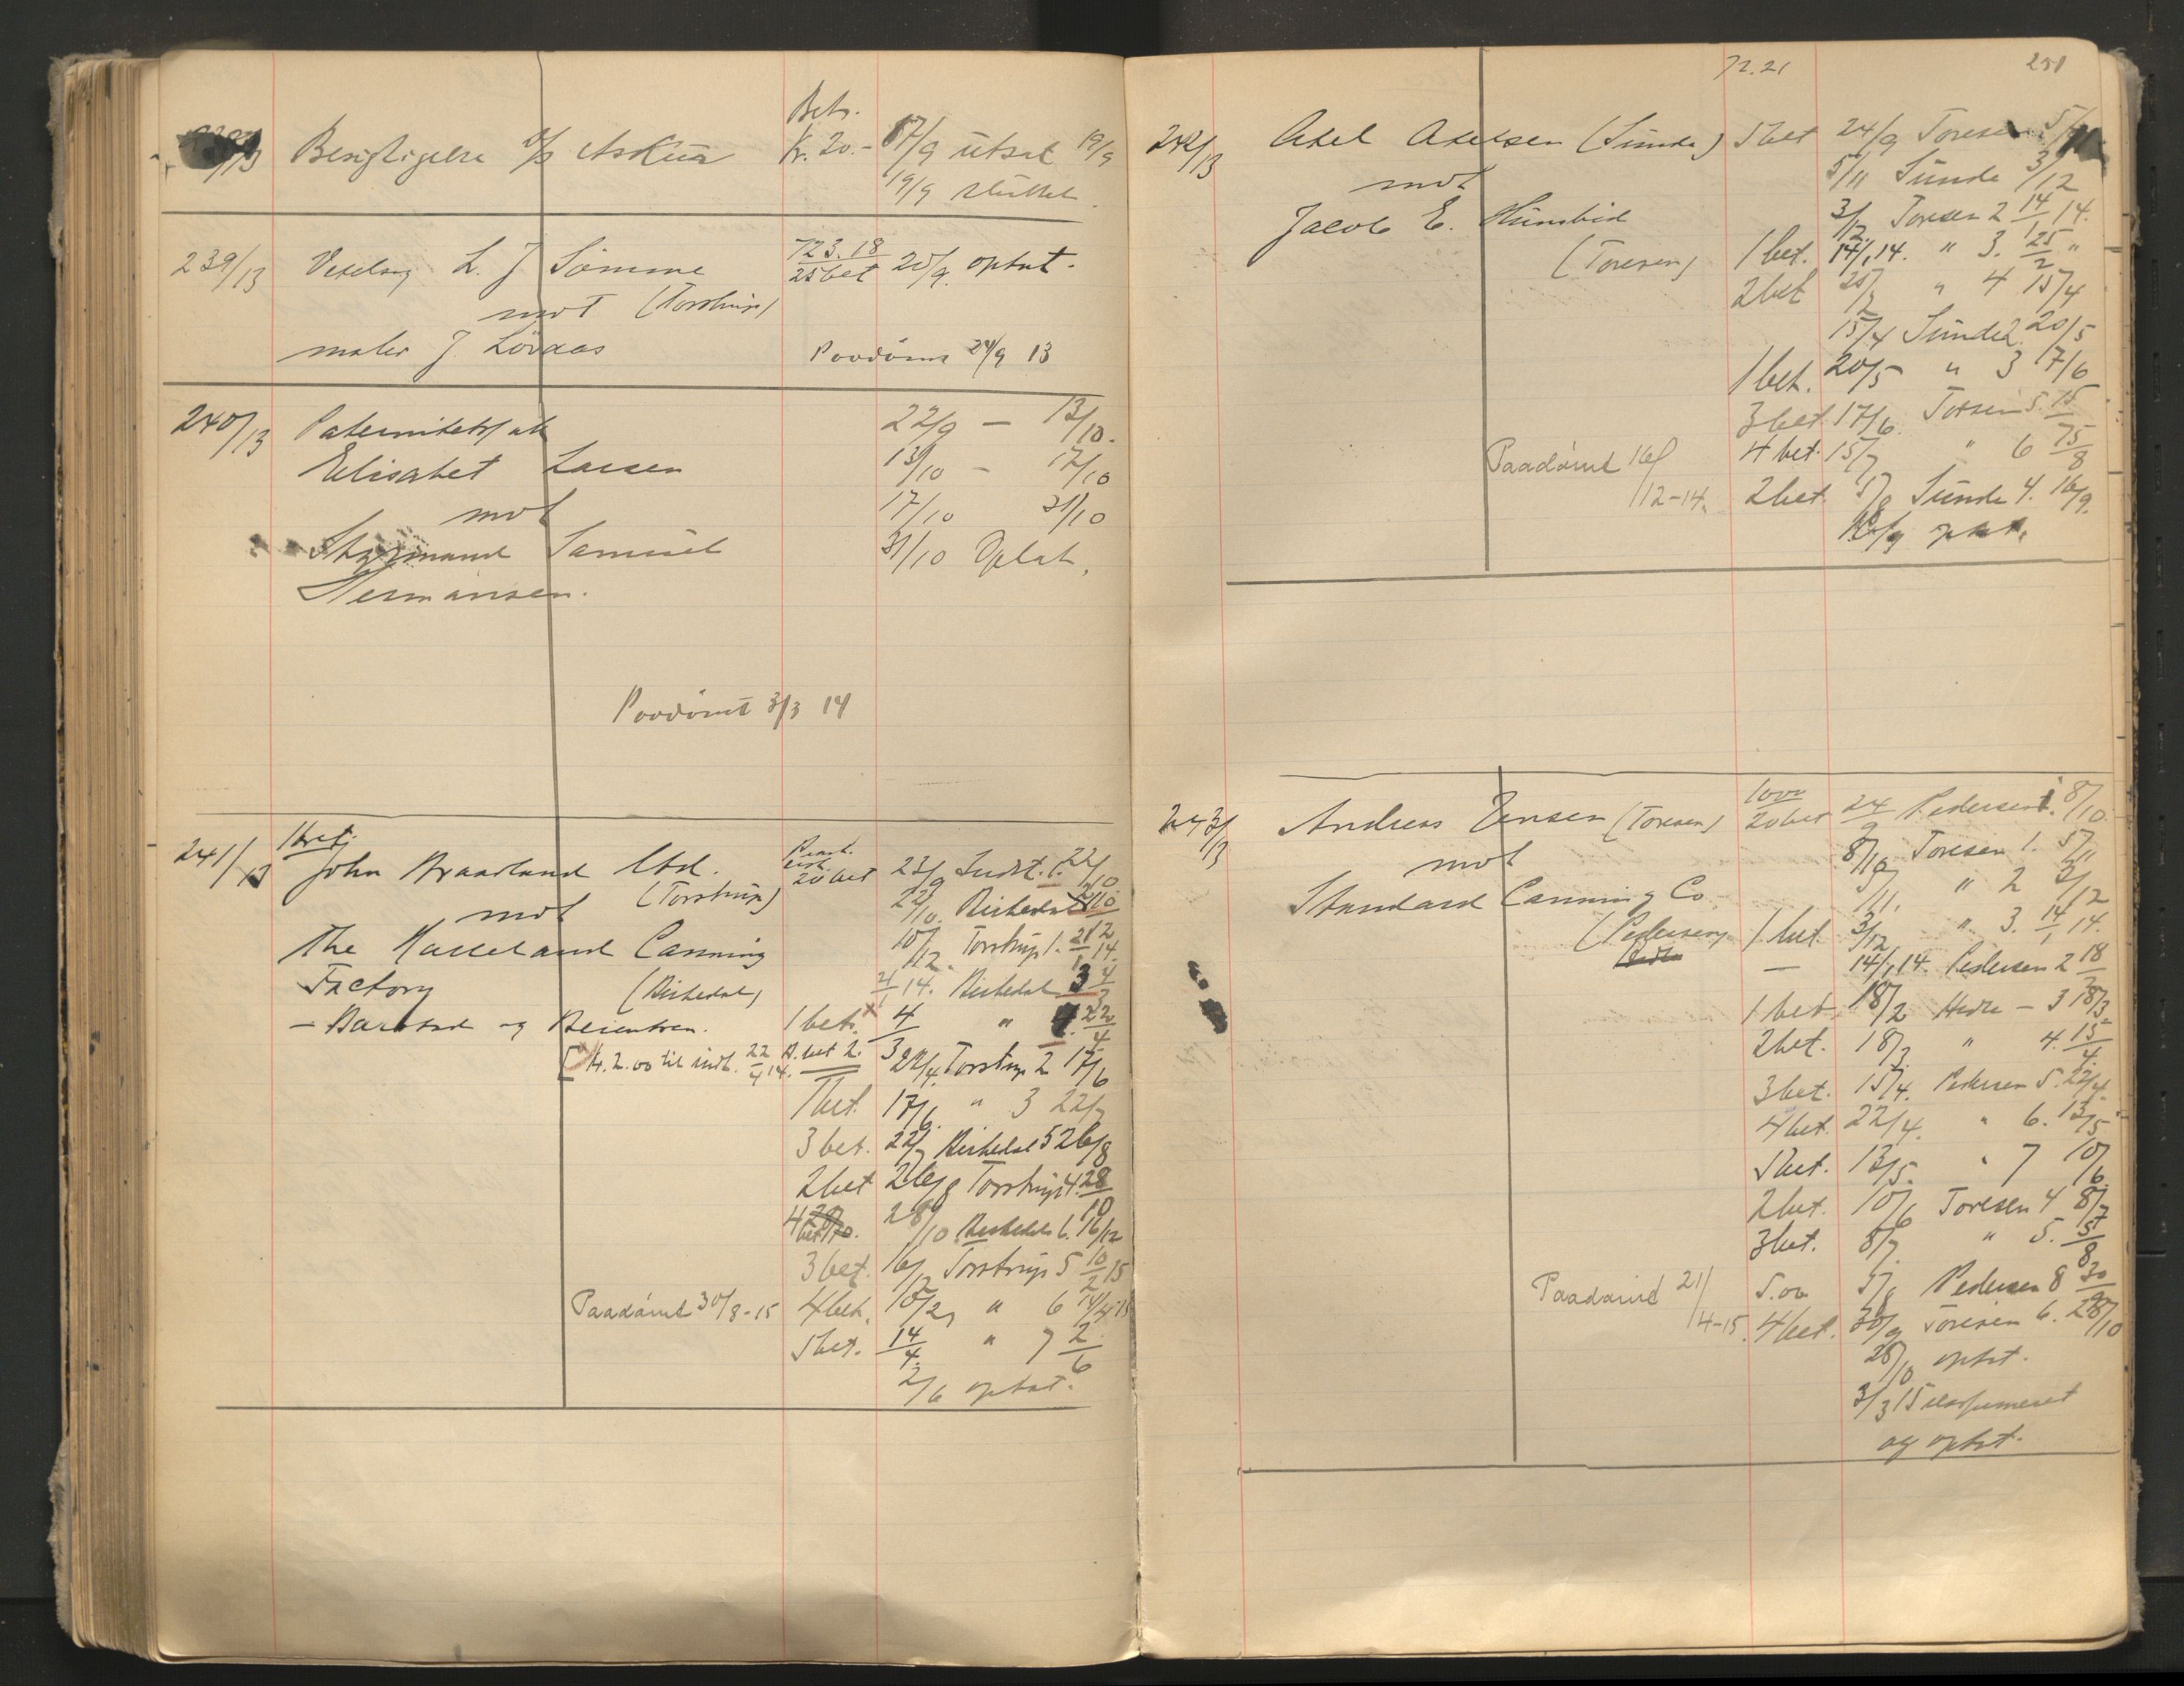 Bet.
/13 Besigtigelse d/s Askur Kr. 20.- 17/9 utsat 19/9
19/9 sluttet.
239/13 Vekselsag L. J. Sømme 723.18 25/9 optat.
mot (Torstrup) 25 bet
maler J. Lövaas Paadömt 24/9 13
240/13 Paternitetssak 22/9 - 13/10.
Elisabet Larsen 13/10 - 17/10
mot 17/10 31/10
Styrmand Samuel 31/10 Optat.
Hermansen.
Paadömt 3/3 14
241/13 1 bet.
John Braadland Ltd. 20 bet 23/9 Indst. 1. 22/10
mot (Torstrup) 22/10. Birkedal
The Kalleland Canning 10/12. Torstrup 1. 21/1 14.
Factory (Birkedal) 21/1 14. Birkedal 3 4/3
1 bet. 4/3 " 4. 22/4
[Kr. 2.00 til indt. 22/4 14. 22/4. Torstrup 2 17/6
1 bet. 17/6. " 3 22/7
3 bet. 22/7 Birkedal 5 26/8
2 bet 26/8 Torstrup 4. 28/10
4 bet 28/10 Birkedal 6. 16/12
3 bet. 16/12 Torstrup 5 10/2 15
Paadömt 30/8-15 4 bet. 10/2, " 6 14/4 15
5 bet. 14/4. " 7 2/6
2/6 optat.
72.21 251
242/13 Axel Axelsen (Sunde) 5 bet 24/9 Toresen 5/11
mot 5/11 Sunde 3/12
Jacob E. 3/12 Toresen 2 14/1 14.
(Toresen) 1 bet. 14/1 14. " 3. 25/2 "
2 bet 25/2 " 4 15/4
15/4 Sunde 2. 20/5
1 bet. 20/5 " 3 17/6
3 bet. 17/6. Toresen 5. 15/7
Paadömt 16/12-14. 4 bet. 15/7 " 6 5/8
2 bet. 5/8 Sunde 4. 16/9.
16/9 optat.
243/13 Andreas Jensen (Toresen) 1000 24/9 Pedersen 1. 8/10.
20 bet
mot 8/10 Toresen 1. 5/11
Standard Canning Co. 5/11. " 2 3/12
(Pedersen) 1 bet. 3/12 " 3. 14/1 14.
— 14/1 14. Pedersen 2 18/2
1 bet. 18/2 Hedre - 3 18/3.
2 bet. 18/3 " 4. 15/4.
3 bet. 15/4. Pedersen 5. 22/4.
4 bet. 22/4. " 6. 13/5
5 bet. 13/5. " 7 10/6.
2 bet. 10/6 Toresen 4 8/7
3 bet. 8/7. " 5. 5/8
Paadömt 21/4-15. 5.00 5/8 Pedersen 8 30/9
4 bet. 30/9 Toresen 6. 28/10
28/10 optat.
3/3 15 reassumeret
og optat.